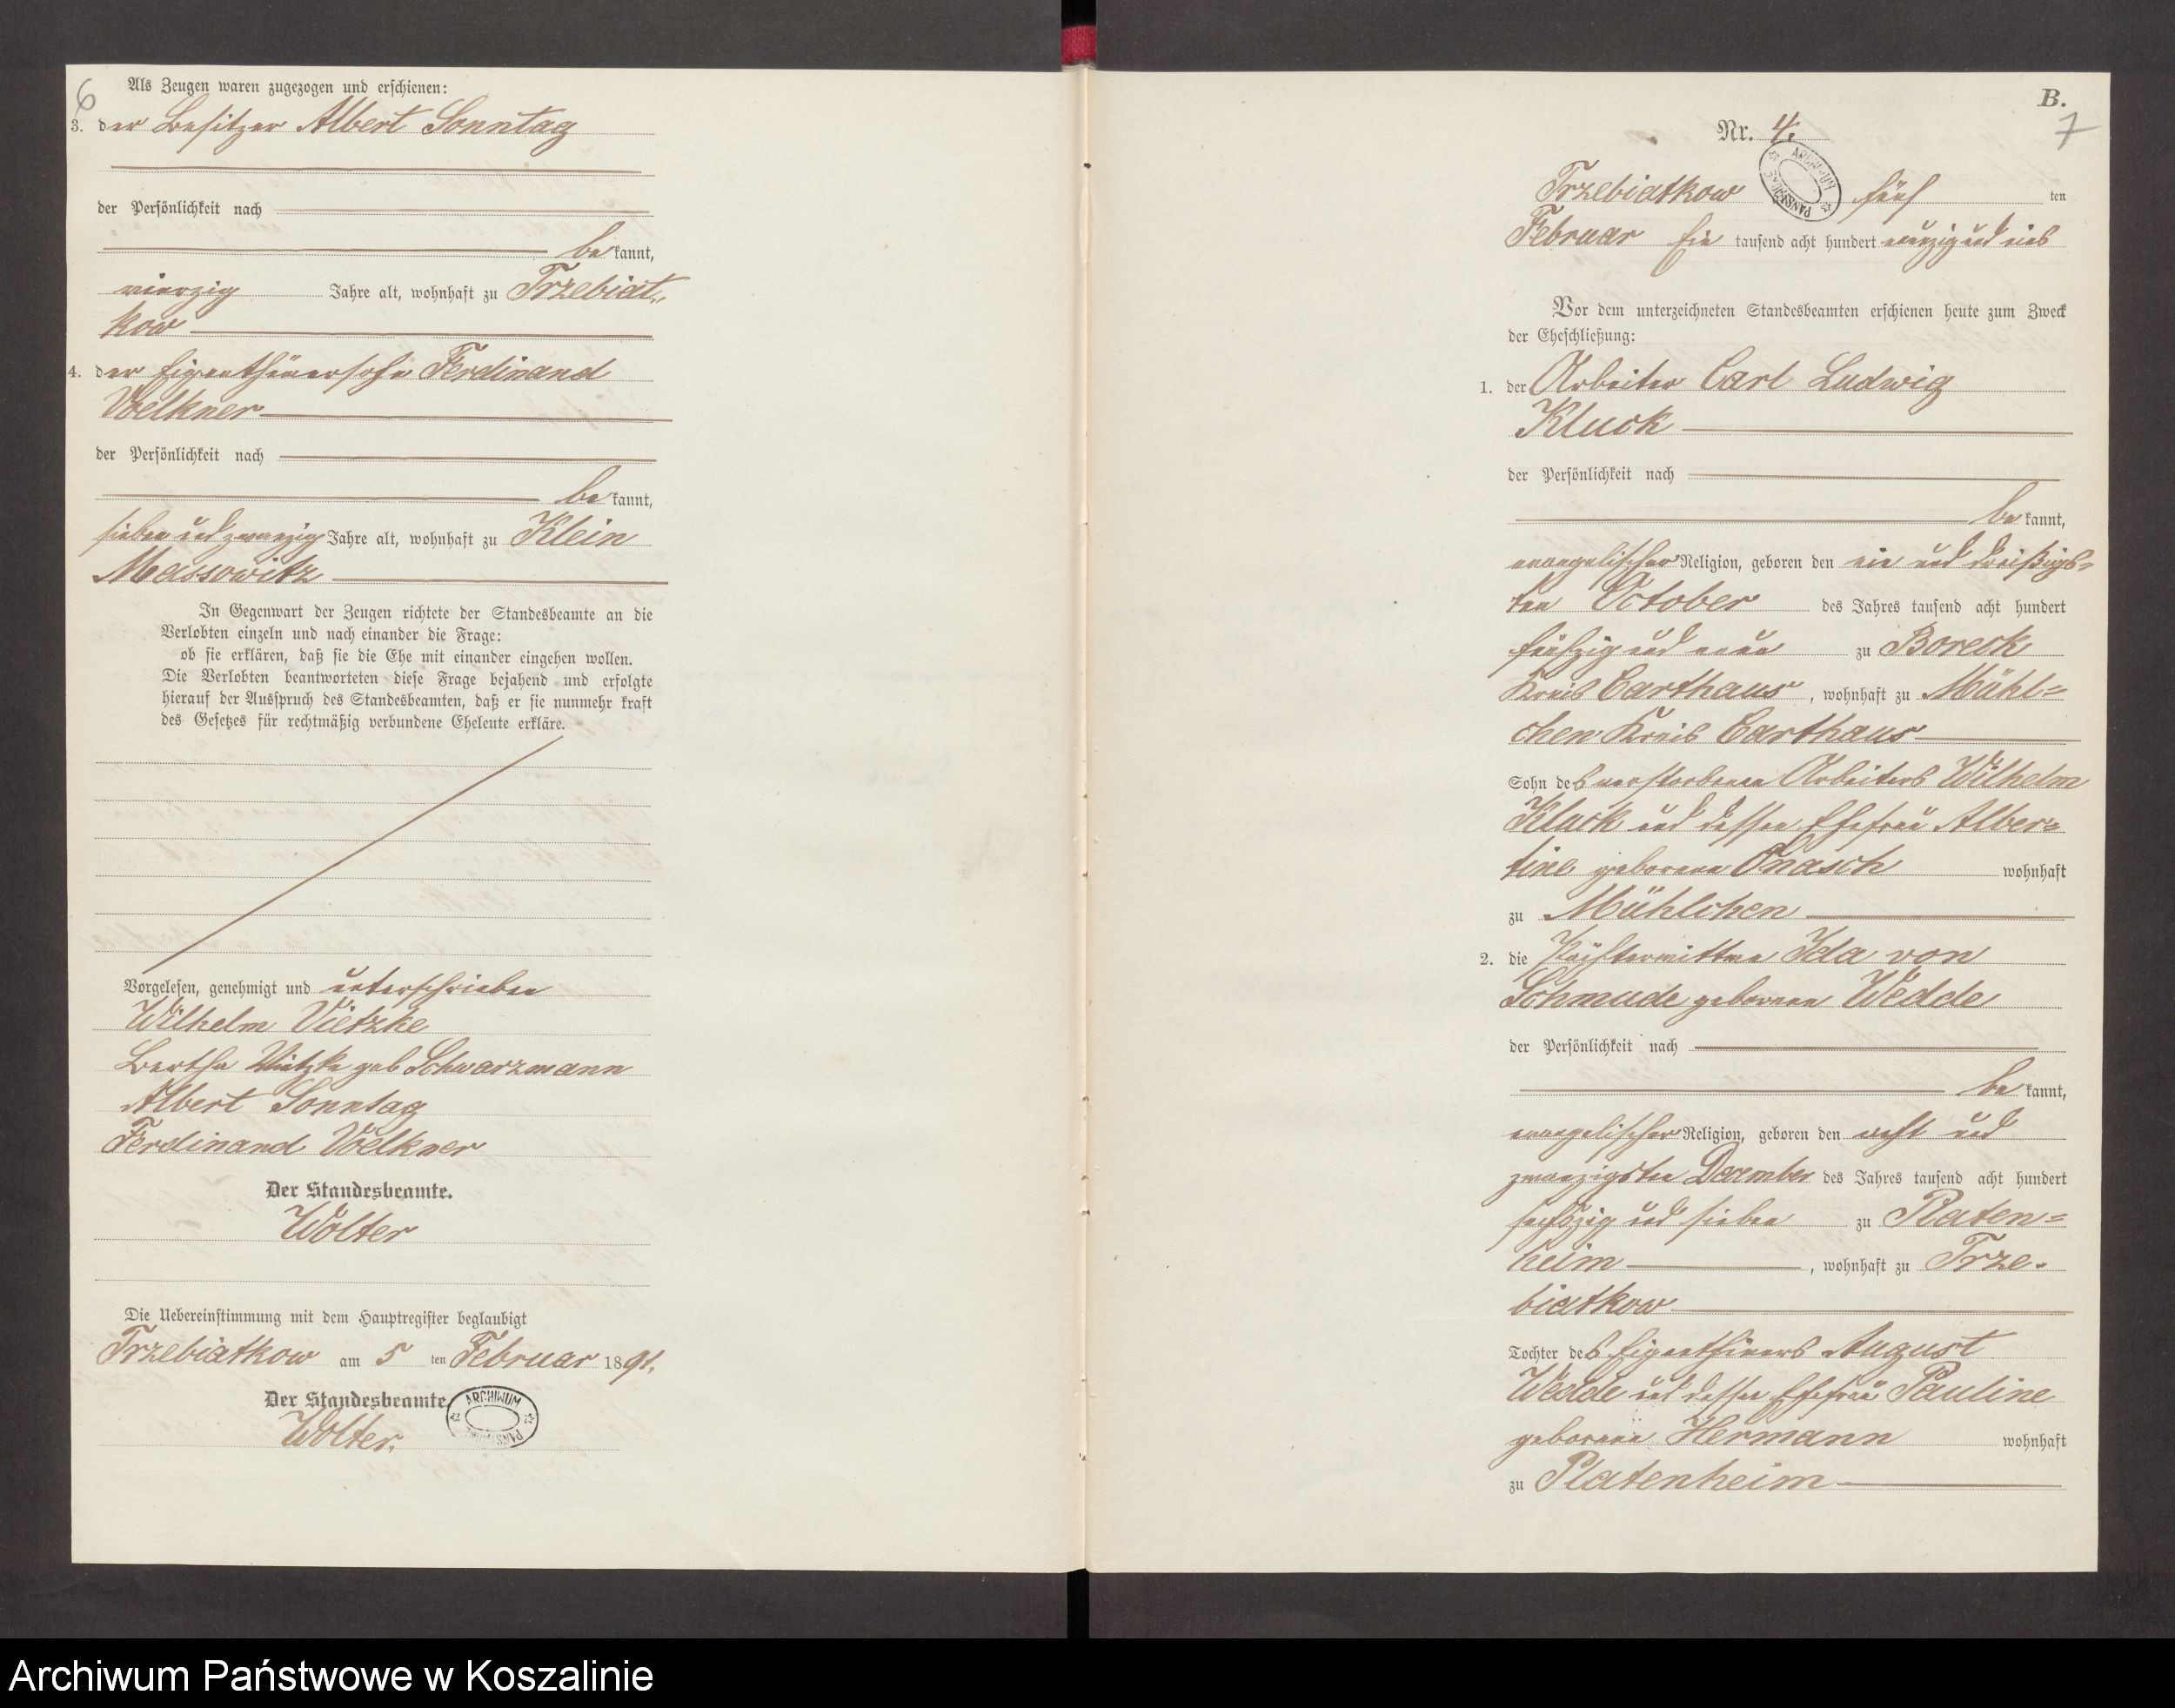 6
Als Zeugen waren zugezogen und erschienen:
3. der Besitzer Albert Sonntag
der Persönlichkeit nach
bekannt,
vierzig Jahre alt, wohnhaft zu Trzebiat-
kow
4. der Eigenthümersohn Ferdinand
Voelkner
der Persönlichkeit nach
bekannt,
sieben und zwanzig Jahre alt, wohnhaft zu Klein
Massowitz
In Gegenwart der Zeugen richtete der Standesbeamte an die
Verlobten einzeln und nach einander die Frage:
ob sie erklären, daß sie die Ehe mit einander eingehen wollen.
Die Verlobten beantworteten diese Frage bejahend und erfolgte
hierauf der Ausspruch des Standesbeamten, daß er sie nunmehr kraft
des Gesetzes für rechtmäßig verbundene Eheleute erkläre.
Vorgelesen, genehmigt und unterschrieben
Wilhelm Vietzke
Bertha Vietzke geb Schwarzmann
Albert Sonntag
Ferdinand Voelkner
Der Standesbeamte.
Wolter
Die Uebereinstimmung mit dem Hauptregister beglaubigt
Trzebiatkow am 5 ten Februar 1891.
Der Standesbeamte
Wolter.
ARCHIWUM
B.
7
Nr. 4.
Trzebiatkow fünf ten
Februar Ein tausend acht hundert neunzig und eins
Vor dem unterzeichneten Standesbeamten erschienen heute zum Zweck
der Eheschließung:
1. der Arbeiter Carl Ludwig
Kluck
der Persönlichkeit nach
bekannt,
evangelischer Religion, geboren den ein und dreißigs-
ten October des Jahres tausend acht hundert
fünfzig und neun zu Boreck
Kreis Carthaus, wohnhaft zu Mühl-
chen Kreis Carthaus
Sohn des verstorbenen Arbeiters Wilhelm
Kluck und dessen Ehefrau Alber-
tine geborene Onasch wohnhaft
zu Mühlchen
2. die Ida von
Schmude geborene Wedde
der Persönlichkeit nach
bekannt,
evangelischer Religion, geboren den acht und
zwanzigsten Dezember des Jahres tausend acht hundert
sechszig und sieben zu Platen-
heim, wohnhaft zu Trze-
biatkow
Tochter des Eigenthümers August
Wedde und dessen Ehefrau Pauline
geborene Hermann wohnhaft
zu Platenheim
Archiwum Państwowe w Koszalinie